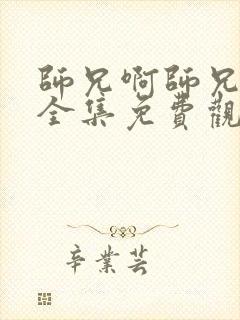 師兄啊師兄
全集免費觀
辛業芸